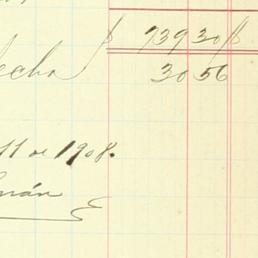 $ 739 30
echa 30 56
11 de 1908.
mán